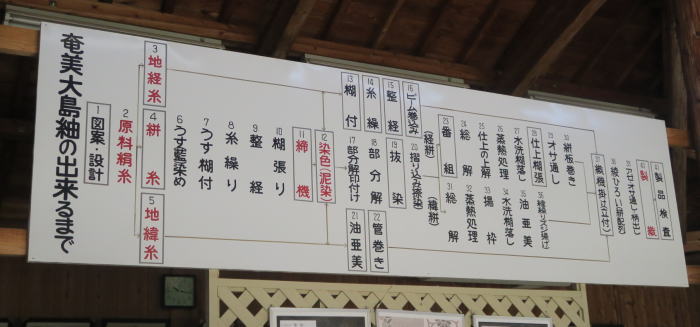 奄美大島紬の出来るまで
1 図案・設計
2 原料絹糸
3 地経糸
4 絣糸
5 地緯糸
6 うす藍染め
7 うす糊付
8 糸繰り
9 整経
10 糊張り
11 締機
12 染色(泥染)
13 糊付
14 糸繰
15 整経
16 ビーム巻込み
17 部分解印付け
18 部分解
19 抜染
20 摺り込み
21 油亜美
22 管巻き
(経絣)
(緯絣)
23 番組
24 総解
25 仕上の上解
26 蒸熱処理
27 水洗糊落し
28 仕上糊張
29 オサ通し
30 絣板巻き
31 総解
32 蒸熱処理
33 揚枠
34 水洗糊落し
35 油亜美
36
37 織機掛け(立付)
38 綾ひろい絣配列
39 オサ通し柄出し
40 製織
41 製品検査